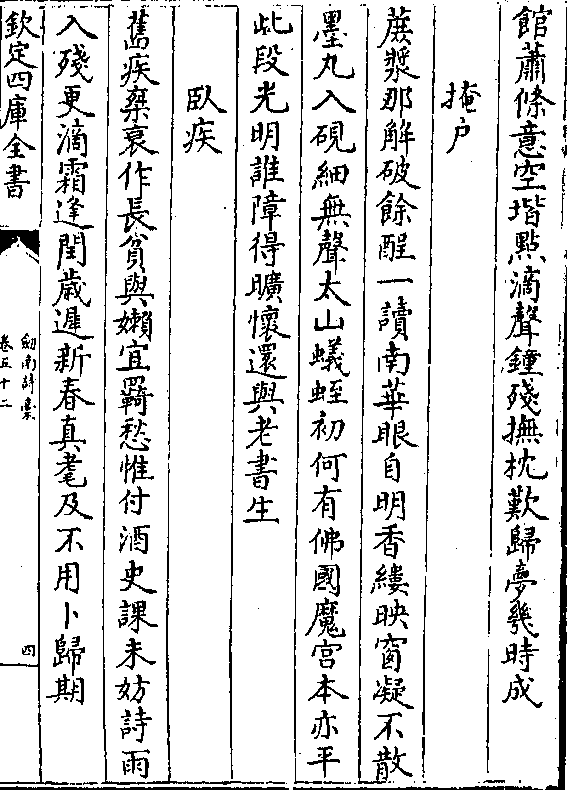 館蕭條意空堦點滴聲鐘殘撫枕歎歸夢幾時成
掩戶
蔗漿那解破餘酲一讀南華眼自明香縷映窗凝不散
墨丸入硯細無聲太山蟻蛭初何有佛國魔宮本亦平
此段光明誰障得曠懷還與老書生
臥疾
舊疾乗衰作長貧與嬾宜羇愁惟付酒史課未妨詩雨
入殘更滴霜逢閏歲遲新春真耄及不用卜歸期
欽定四庫全書
劍南詩稾
卷五十二
四